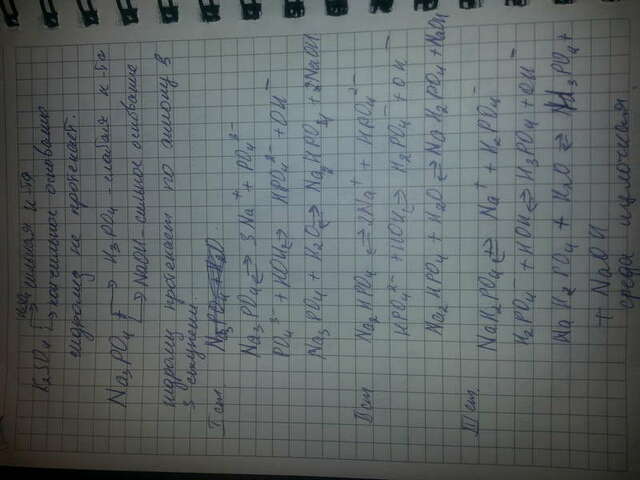 K₂SO₄ ⟶ H₂SO₄ сильная к-та
⟶ KOH сильное основание
гидролиз не протекает.
Na₃PO₄ ⟶ H₃PO₄ - слабая к-та
⟶ NaOH - сильное основание
гидролиз протекает по аниону в
3 ступени.
I ст.
Na₃PO₄ ⇄ 3Na⁺ + PO₄³⁻
PO₄³⁻ + HOH ⇄ HPO₄²⁻ + OH⁻
Na₃PO₄ + H₂O ⇄ Na₂HPO₄ + NaOH
II ст
Na₂HPO₄ ⇄ 2Na⁺ + HPO₄²⁻
HPO₄²⁻ + HOH ⇄ H₂PO₄⁻ + OH⁻
Na₂HPO₄ + H₂O ⇄ NaH₂PO₄ + NaOH
III ст.
NaH₂PO₄ ⇄ Na⁺ + H₂PO₄⁻
H₂PO₄⁻ + HOH ⇄ H₃PO₄ + OH⁻
NaH₂PO₄ + H₂O ⇄ H₃PO₄ +
+ NaOH
среда щелочная